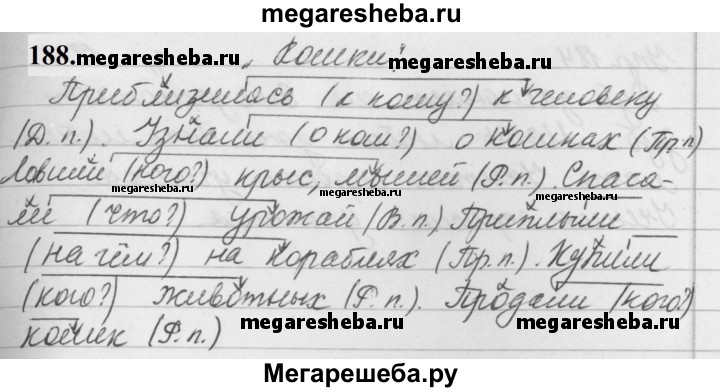 megaresheba.ru
188. megaresheba.ru „Кошки“ megaresheba.ru
Приблизилась (к кому?) к человеку
(Д. п.). Узнали (о ком?) о кошках (Пр.п)
Ловили (кого?) крыс, мышей (Р. п.). Спаса-
megaresheba.ru megaresheba.ru megaresheba.ru
ли (что?) урожай (В. п.) Приплыли
(на чём?) на кораблях (Пр. п.). Купили
(кого?) животных (Р. п.). Продали (кого?)
кошек (Р. п.)
megaresheba.ru megaresheba.ru
Мегарешеба.ру